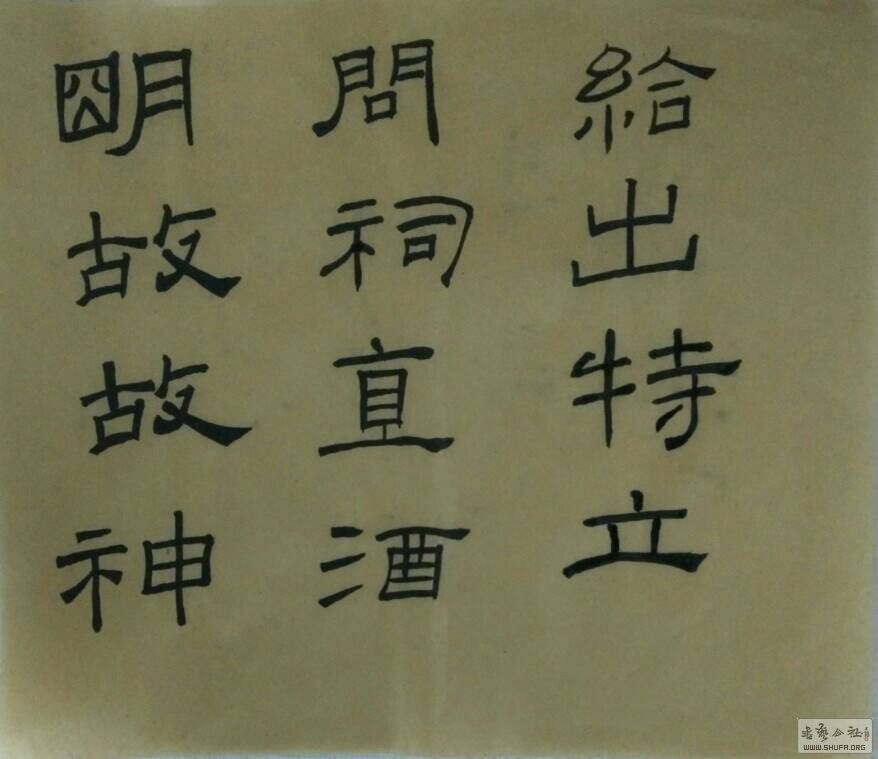 給出特立
問祠直酒
明故故神
書艺公社
WWW.SHUFA.ORG